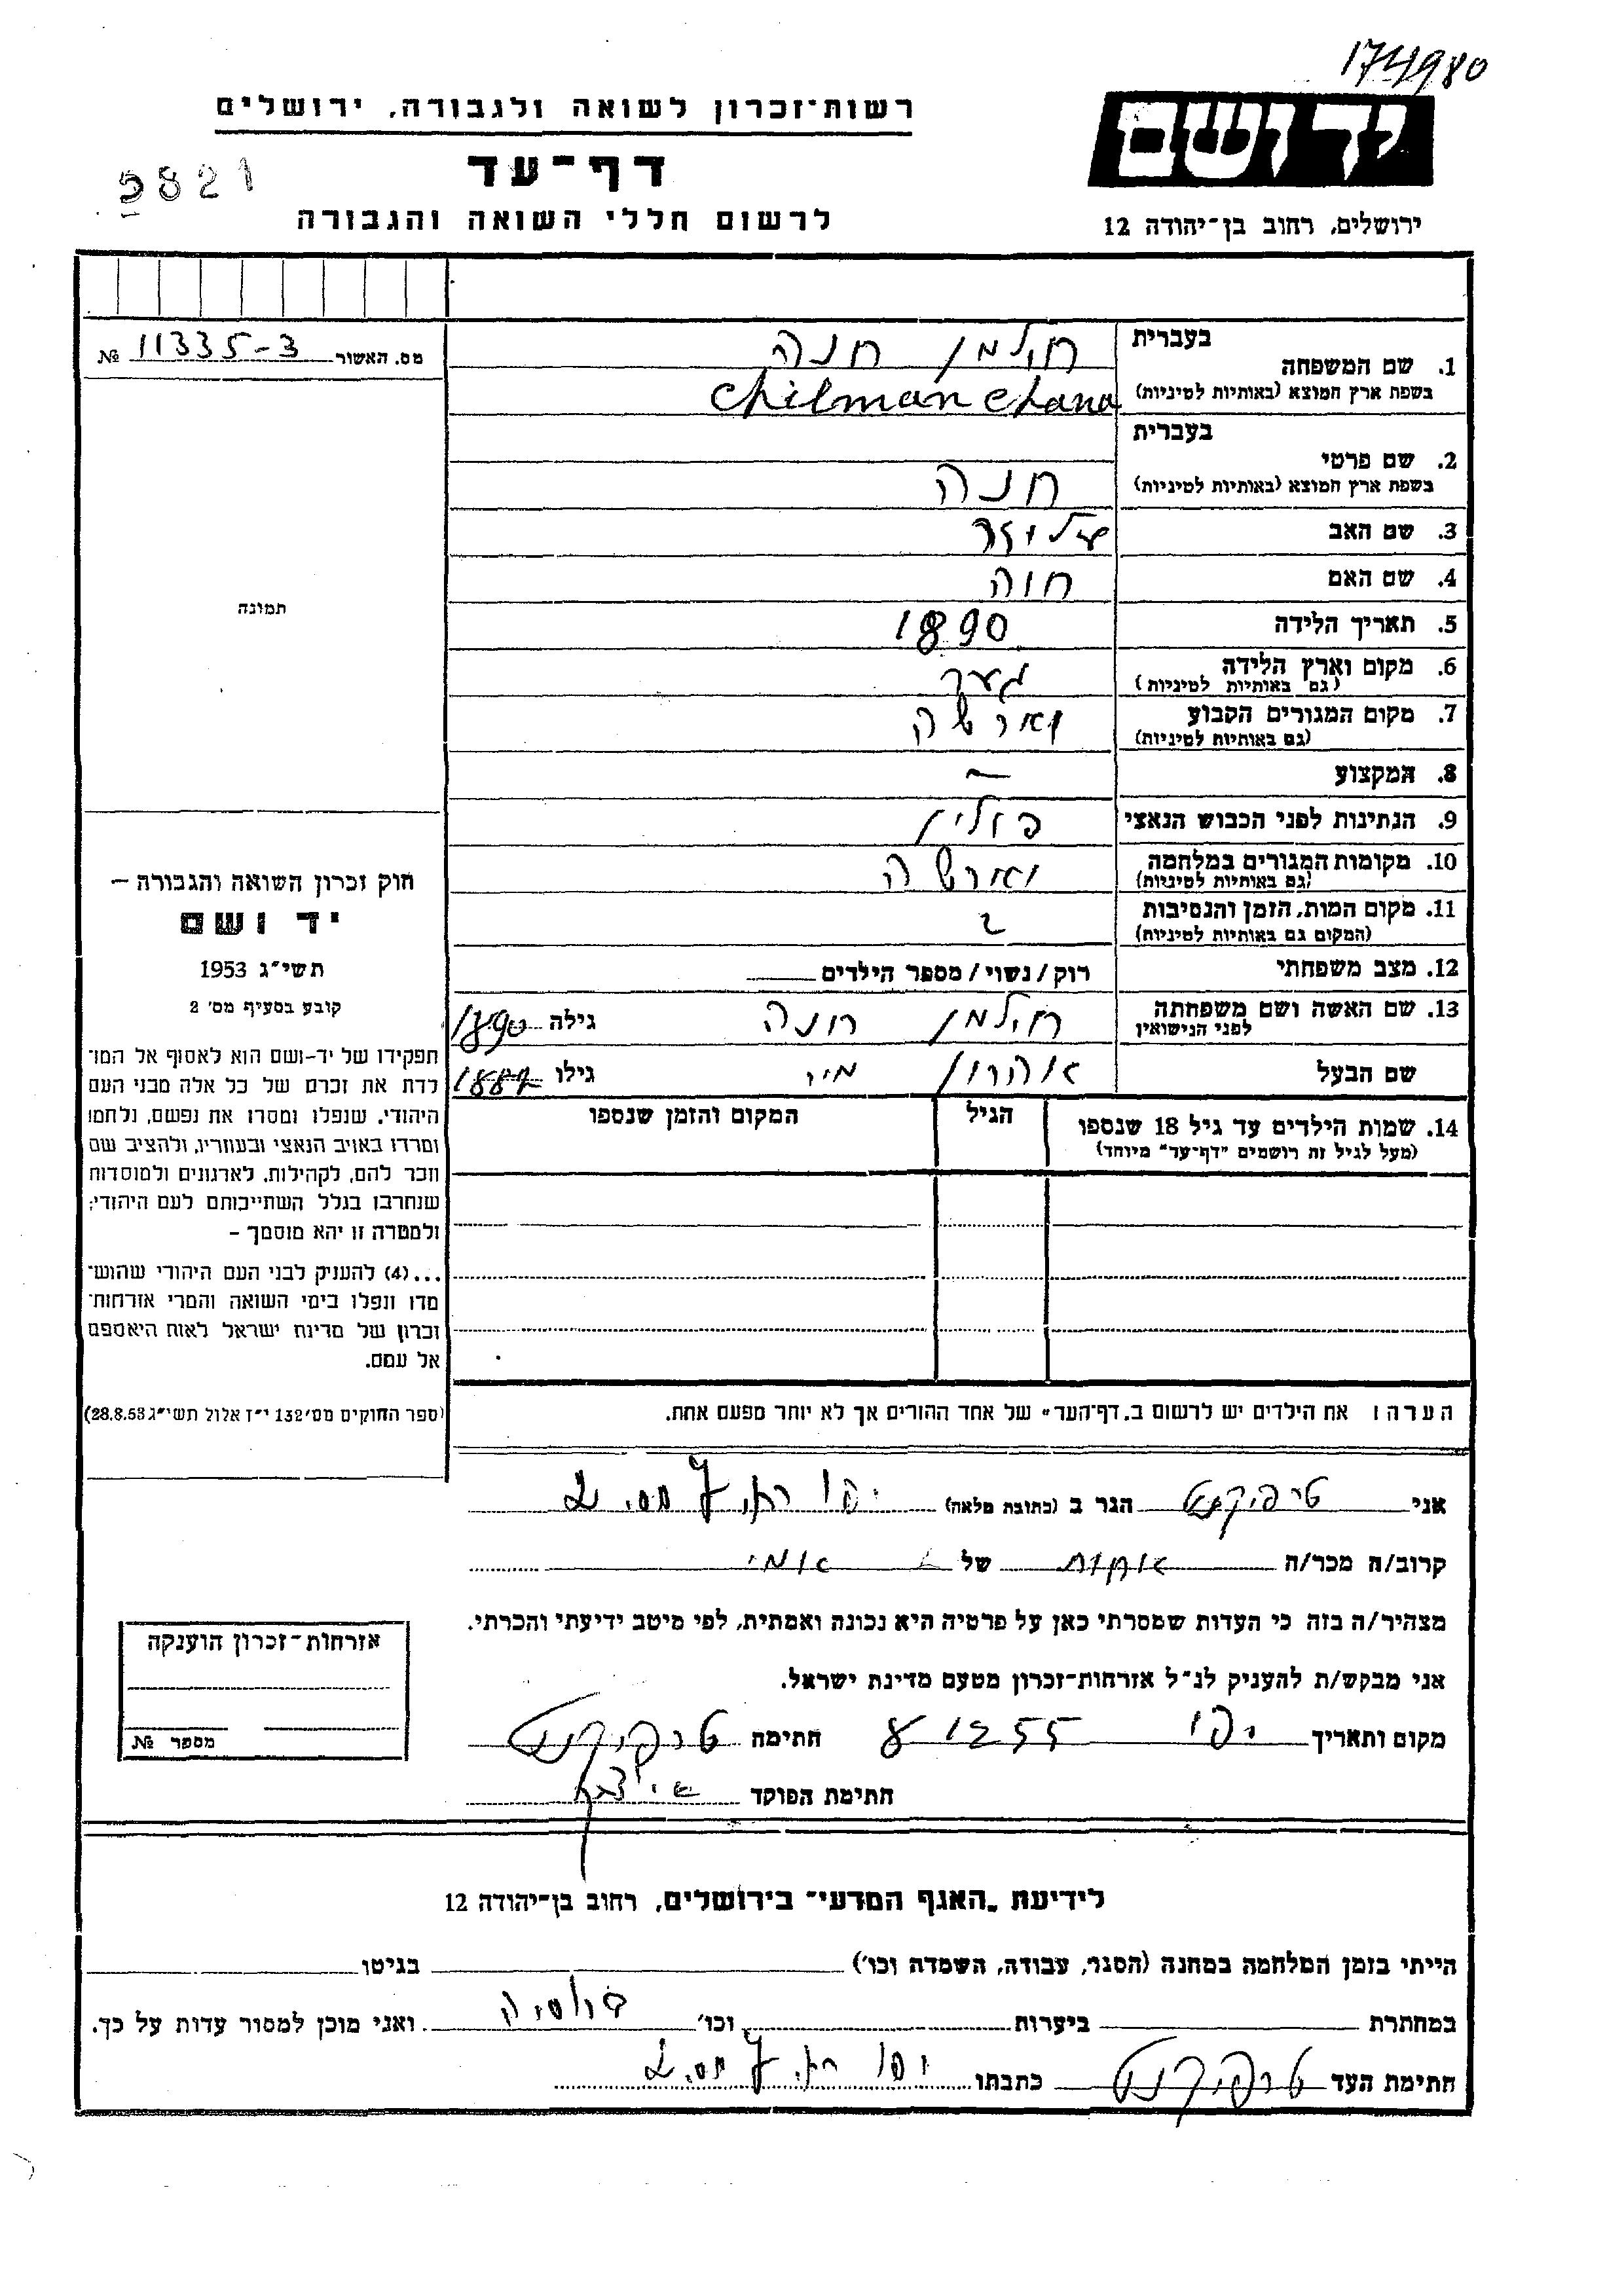 174980
רשות־זכרון לשואה ולגבורה, ירושלים
יד ושם
דף־עד
5821
לרשום חללי השואה והגבורה
ירושלים, רחוב בן־יהודה 12
בעברית
1. שם המשפחה
בשפת ארץ המוצא (באותיות לטיניות)
חילמן חנה
Chilman Chana
מס. האשור 11335-3 №
בעברית
2. שם פרטי
בשפת ארץ המוצא (באותיות לטיניות)
חנה
3. שם האב
4. שם האם חוה
תמונה
5. תאריך הלידה 1890
6. מקום וארץ הלידה
(גם באותיות לטיניות)
7. מקום המגורים הקבוע וארשה
(גם באותיות לטיניות)
8. המקצוע —
9. הנתינות לפני הכבוש הנאצי פולין
10. מקומות המגורים במלחמה וארשה
(גם באותיות לטיניות)
11. מקום המות, הזמן והנסיבות
(המקום גם באותיות לטיניות)
12. מצב משפחתי רוק/נשוי/מספר הילדים
13. שם האשה ושם משפחתה חילמן חנה גילה 1890
לפני הנישואין
שם הבעל אהרון גילו 1887
14. שמות הילדים עד גיל 18 שנספו הגיל המקום והזמן שנספו
(מעל לגיל זה רושמים "דף־עד" מיוחד)
חוק זכרון השואה והגבורה –
יד ושם
תשי"ג 1953
קובע בסעיף מס' 2
תפקידו של יד-ושם הוא לאסוף אל המו־
לדת את זכרם של כל אלה מבני העם
היהודי, שנפלו ומסרו את נפשם, נלחמו
ומרדו באויב הנאצי ובעוזריו, ולהציב שם
וזכר להם, לקהילות, לארגונים ולמוסדות
שנחרבו בגלל השתייכותם לעם היהודי;
ולמטרה זו יהא מוסמך –
...(4) להעניק לבני העם היהודי שהוש־
מדו ונפלו בימי השואה והמרי אזרחות־
זכרון של מדינת ישראל לאות היאספם
אל עמם.
(ספר החוקים מס' 132 י"ז אלול תשי"ג 28.8.53)
הערה ו את הילדים יש לרשום ב„דף־העד" של אחד ההורים אך לא יותר מפעם אחת.
אני הגר ב (כתובת מלאה) יפו
קרוב/ה מכר/ה אחות של אמי
מצהיר/ה בזה כי העדות שמסרתי כאן על פרטיה היא נכונה ואמתית, לפי מיטב ידיעתי והכרתי.
אני מבקש/ת להעניק לנ"ל אזרחות־זכרון מטעם מדינת ישראל.
מקום ותאריך יפו 8 12 55 חתימה
חתימת הפוקד
אזרחות־זכרון הוענקה
מספר №
לידיעת „האגף המדעי־ בירושלים, רחוב בן־יהודה 12
הייתי בזמן המלחמה במחנה (הסגר, עבודה, השמדה וכו') בגיטו
במחתרת ביערות וכו' ואני מוכן למסור עדות על כך.
חתימת העד כתבתו יפו